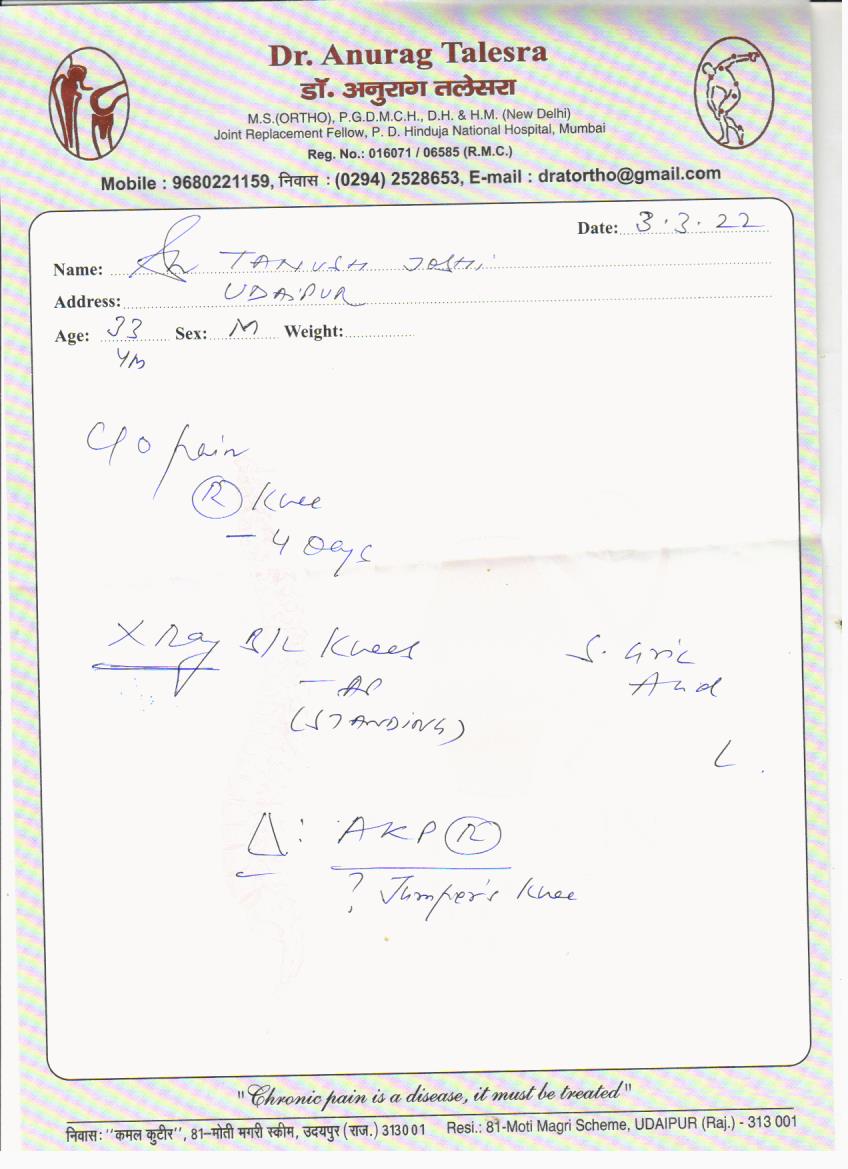 Dr. Anurag Talesra
डॉ. अनुराग तलेसरा
M.S.(ORTHO), P.G.D.M.C.H., D.H. & H.M. (New Delhi)
Joint Replacement Fellow, P. D. Hinduja National Hospital, Mumbai
Reg. No.: 016071 / 06585 (R.M.C.)
Mobile : 9680221159, निवास : (0294) 2528653, E-mail : dratortho@gmail.com
Date: 3.3.22
Name: TANUSH JOSHI
Address: UDAIPUR
Age: 33 Sex: M Weight:
C/o pain
(R) Knee
- 4 Days
X Ray B/L Knees
- AP
(STANDING)
S. Uric
Acid
Δ: AKP (R)
? Jumper's Knee
"Chronic pain is a disease, it must be treated"
निवास: "कमल कुटीर", 81-मोती मगरी स्कीम, उदयपुर (राज.) 313001 Resi.: 81-Moti Magri Scheme, UDAIPUR (Raj.) - 313 001